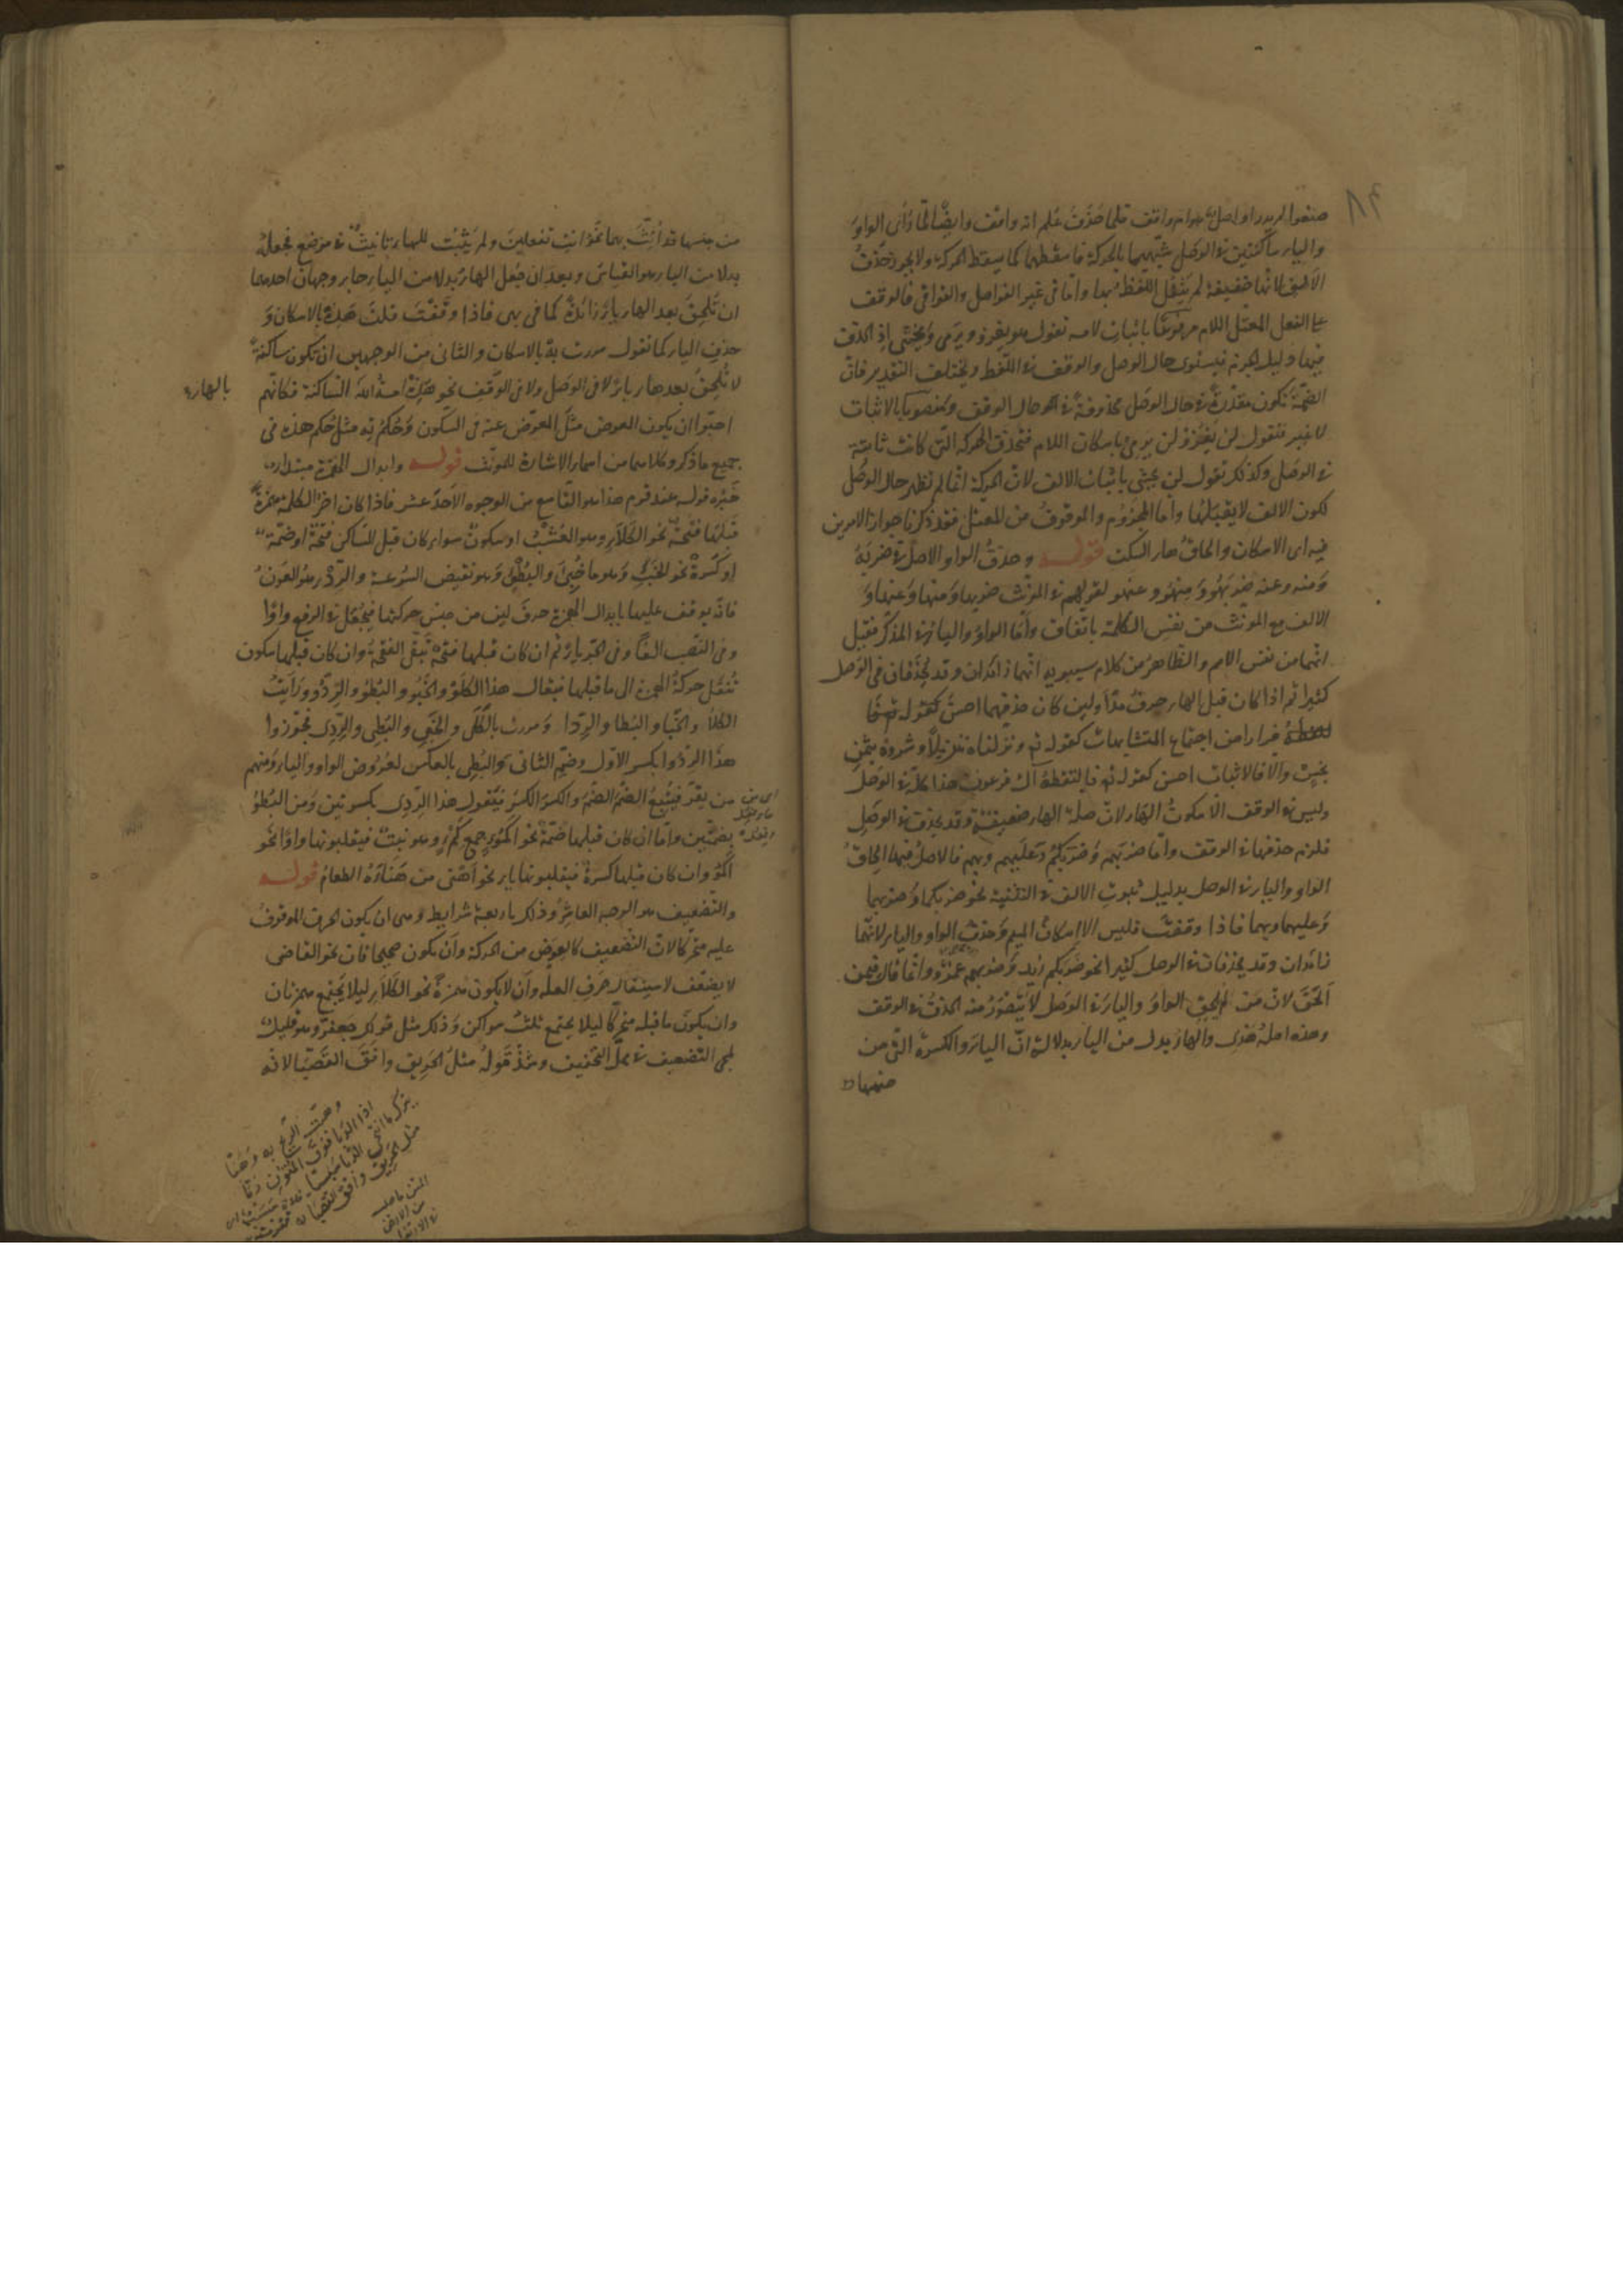 ٨٤
صنعوا لم يدر اواصل هو ام واقف فلما حذف علم انه واقف وايضا لما رأى الواو
والياء ساكنتين في الوصل شبههما بالحركة فاسقطهما كما يسقط الحركة ولا يجوز حذف
الالف لانها خفيفة لم يثقل اللفظ بها واما في غير الفواصل والقوافي فالوقف
على الفعل المعتل اللام مرفوعا باثبات لامه تقول هو يغزو ويرمي ويخشى اذ الحذف
فيها دليل الجزم فيستوى حال الوصل والوقف في اللفظ ويختلف التقدير فان
الضمة تكون مقدرة في حال الوصل محذوفة في حال الوقف ومنصوبا بالاثبات
لا غير فتقول لن يغزو ولن يرمي باسكان اللام فتحذف الحركة التي كانت ثابتة
في الوصل وكذلك تقول لن يخشى باثبات الالف لان الحركة انما لم تظهر حال الوصل
لكون الالف لا يقبلها واما المجزوم والموقوف من المعتل فقد ذكرنا جواز الامرين
فيه اى الاسكان والحاق هاء السكت قوله وحذف الواو الاصل في ضربه
ومنه وعنه ضربهو ومنهو وعنهو لقولهم في المونث ضربها ومنها وعنها و
الالف مع المونث من نفس الكلمة باتفاق واما الواو والياء في المذكر فقيل
انهما من نفس الاسم والظاهر من كلام سيبويه انهما زائدان وقد يحذفان في الوصل
كثيرا ثم اذا كان قبل الهاء حرف مد او لين كان حذفهما احسن كقوله
فرارا من اجتماع المتشابهات كقوله تع ونزلناه تنزيلا وشروه بثمن
بخس والا فالاثبات احسن كقوله تع فالتقطه آل فرعون هذا كله في الوصل
وليس في الوقف الا سكون الهاء لان صلة الهاء ضعيفة وقد يحذف في الوصل
فلزم حذفها في الوقف واما ضربهم وضربكم وعليهم وبهم فالاصل فيها الحاق
الواو والياء في الوصل بدليل ثبوت الالف في التثنية نحو ضربكما وضربهما
وعليهما وبهما فاذا وقفت فليس الا اسكان الميم وحذف الواو والياء لانهما
زائدان وقد يحذفان في الوصل كثيرا نحو ضربكم زيد وضربهم عمرو وانما قال فيمن
الحق لان من لم يلحق الواو والياء في الوصل لا يتصور منه الحذف في الوقف
وهذه اصله هذى والهاء بدل من الياء بدلالة ان الياء والكسرة التي من
جنسها قد انث بهما نحو انت تفعلين ولم يثبت للهاء تانيث في موضع فجعله
بدلا من الياء هو القياس وبعد ان جعل الهاء بدلا من الياء جاء وجهان احدهما
ان تلحق بعد الهاء ياء زائدة كما في بهي فاذا وقفت قلت هذه بالاسكان و
حذف الياء كما تقول مررت به بالاسكان والثاني من الوجهين ان تكون ساكنة
لا تلحق بعدها ياء لا في الوصل ولا في الوقف نحو هذه امة الله الساكنة فكانهم
بالهاء
احبوا ان يكون العوض مثل المعوض عنه في السكون وحكم ته مثل حكم هذه في
جميع ما ذكر وكلاهما من اسماء الاشارة للمونث قوله وابدال الهمزة مبتدا
خبره قوله عند قوم هذا هو التاسع من الوجوه الاحد عشر فاذا كان اخر الكلمة همزة
قبلها فتحة نحو الكلاء وهو العشب او سكون سواء كان قبل الساكن فتحة او ضمة
او كسرة نحو الخبء وهو ما خبئ والبطء وهو نقيض السرعة والردء وهو العون
فانه يوقف عليها بابدال الهمزة حرف لين من جنس حركتها فيجعل في الرفع واوا
وفي النصب الفا وفي الجر ياء ثم ان كان قبلها فتحة تبقى الفتحة وان كان قبلها سكون
تنقل حركة الهمزة الى ما قبلها فيقال هذا الكلو والخبو والبطو والردو ورايت
الكلا والخبا والبطا والردا ومررت بالكلي والخبي والبطي والردي فجوزوا
هذا الردو بكسر الاول وضم الثاني والبطي بالعكس لعروض الواو والياء ومنهم
من يفر فيتبع الضم الضم والكسر الكسر فيقول هذا الردي بكسرتين ومن البطو
بضمتين واما ان كان قبلها ضمة نحو اكمؤ جمع كمء وهو نبت فيقلبونها واوا نحو
اكمو وان كان قبلها كسرة فيقلبونها ياء نحو اهني من هنأه الطعام قوله
والتضعيف هو الوجه العاشر وذلك باربعة شرايط وهي ان يكون الحرف الموقوف
عليه متحركا لان التضعيف كالعوض من الحركة وان يكون صحيحا فان نحو القاضي
لا يضعف لاستثقال حرف العلة وان لا يكون همزة نحو الكلاء ليلا يجتمع همزتان
وان يكون ما قبله متحركا ليلا يجتمع ثلث سواكن وذلك مثل قولك جعفر وهو قليل
لمجى التضعيف في محل التخفيف وشذ قوله مثل الحريق وافق القصبا لانه
وهبت الريح به وهبا
مثل الحريق وافق القصبا